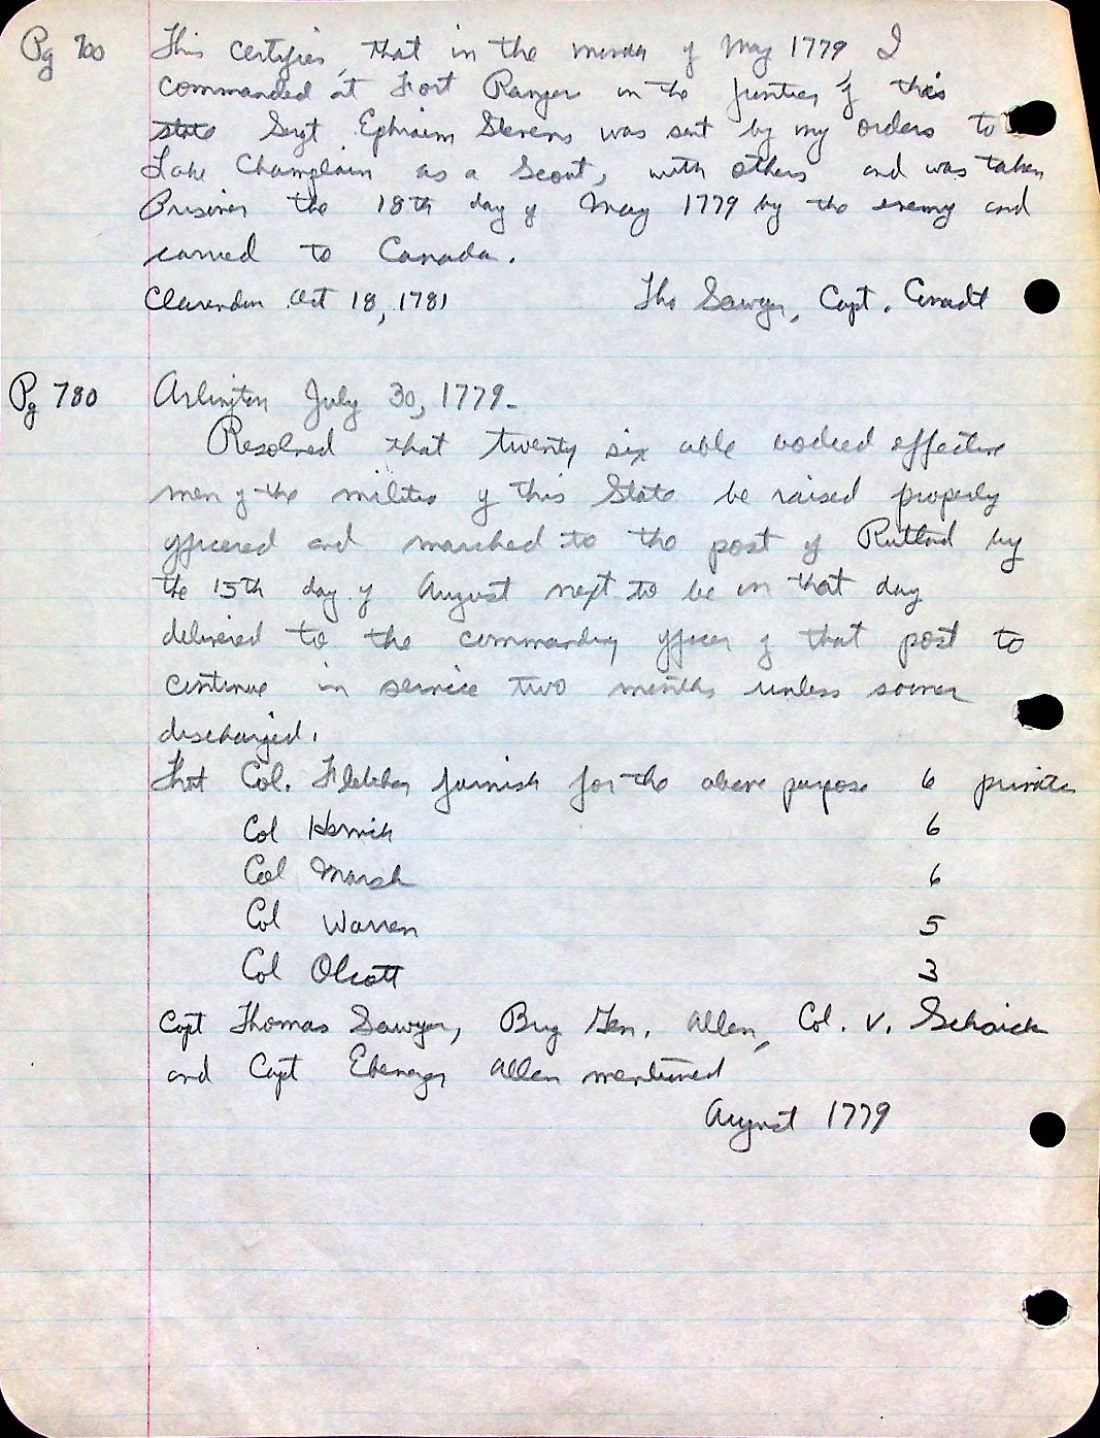 Pg 700 This certifies, that in the month of May 1779 I
commanded at Fort Ranger on the frontier of this
state Sergt Ephraim Stevens was sent by my orders to
Lake Champlain as a Scout, with others and was taken
Prisoner the 18th day of May 1779 by the enemy and
carried to Canada.
Clarendon Oct 18, 1781 Tho Sawyer, Capt. Comadt
Pg 780 Arlington July 30, 1779.
Resolved that twenty six able bodied effective
men of the militia of this State be raised properly
officered and marched to the post of Rutland by
the 15th day of August next to be on that day
delivered to the commanding officer of that post to
continue in service two months unless sooner
discharged.
That Col. Fletcher furnish for the above purpose 6 privates
Col Herrick 6
Col Marsh 6
Col Warren 5
Col Olcott 3
Capt Thomas Sawyer, Brig Gen. Allen, Col. V. Schaick
and Capt Ebenezer Allen mentioned
August 1779